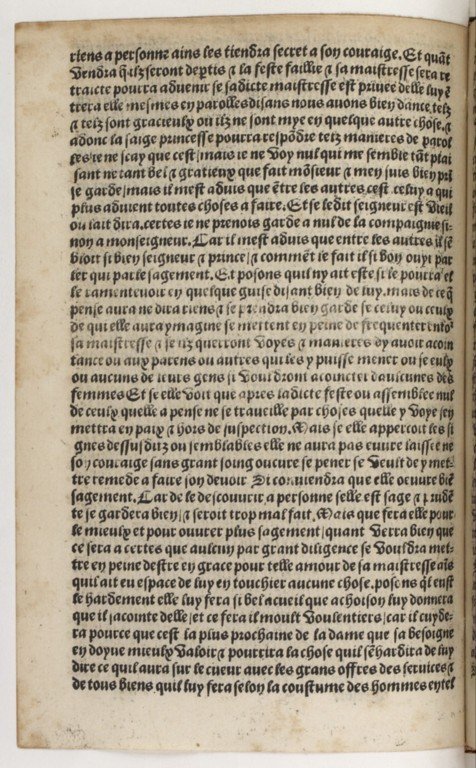 riens a personne ains les tiendra secret a son couraige. Et quāt
vendra q̄ilz seront deptis ⁊ la feste faillie ⁊ sa maistresse sera re
traicte pourra advenir se sadicte maistresse est privee delle luy ē
trera elle mesmes en parolles disans nous avons bien dance, telz
⁊ telz sont gracieulx ou ilz ne sont mye en quelque autre chose. ⁊
adonc la saige princesse pourra respōdre telz manieres de parol
les ie ne scay que cest/mais ie ne voy nul qui me semble tāt plai
sant ne tant bel ⁊ gratieux que fait mōsieur ⁊ mey suis bien pri
se garde/mais il mest advis que ētre les autres cest celuy a qui
plus advient toutes choses a faire. Et se ledit seigneur est vieil
ou lait dira. certes ie ne prenois garde a nul de la compaignie si-
non a monseigneur. Car il mest advis que entre les autres il sē
bloit si bien seigneur ⁊ prince/⁊ commēt le fait il si bon ouyr par
ler qui parle sagement. Et posons quil ny ait este si le pourra el
le ramentevoir en quelque guise disant bien de luy. mais de ce q̄
pense aura ne dira riens ⁊ se prendra bien garde se celuy ou ceulx
de qui elle aura ymagine se mettent en peine de frequenter entor
sa maistresse ⁊ se ilz querront voyes ⁊ manieres dy avoir acoin
tance ou aux parens ou autres qui les y puisse mener ou se eulx
ou aucuns de leurs gens si vouldront acointer daulcunes des
femmes Et se elle voit que apres ladicte feste ou assemblee nul
de ceulx quelle a pense ne se traveille par choses quelle y voye sen
mettra en paix ⁊ hors de suspection. Mais se elle appercoit les si
gnes dessusditz ou semblables elle ne aura pas euvre laissee ne
son couraige sans grant soing ou cure se pener se veult de y met-
tre remede a faire son devoir Si conviendra que elle oeuvre biē
sagement. Car de le descouvrir a personne selle est sage ⁊ prudē
te se gardera bien/⁊ seroit trop mal fait. Mais que fera elle pour
le mieulx et pour ouvrer plus sagement/quant verra bien que
ce sera a certes que aulcun par grant diligence se vouldra met-
tre en peine destre en grace pour telle amour de sa maistresse aīs
quil ait eu espace de luy en touchier aucune chose. posons q̄l eust
le hardement elle luy fera si bel acueil que achoison luy donnera
que il sacointe delle/et ce fera il moult voulentiers/car il cuyde-
ra pource que cest la plus prochaine de la dame que sa besoigne
en doyve mieulx valoir ⁊ pourrira la chose quil sēhardira de luy
dire ce quil aura sur le cueur avec les grans offres des services ⁊
de tous biens quil luy fera selon la coustume des hommes en tel